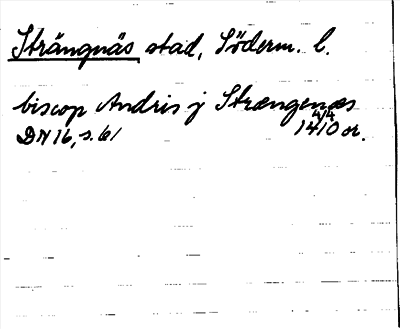 Strängnäs stad, Söderm. l.
biscop Andris j Strængenæs
DN 16, s. 61 4/4 1410 or.